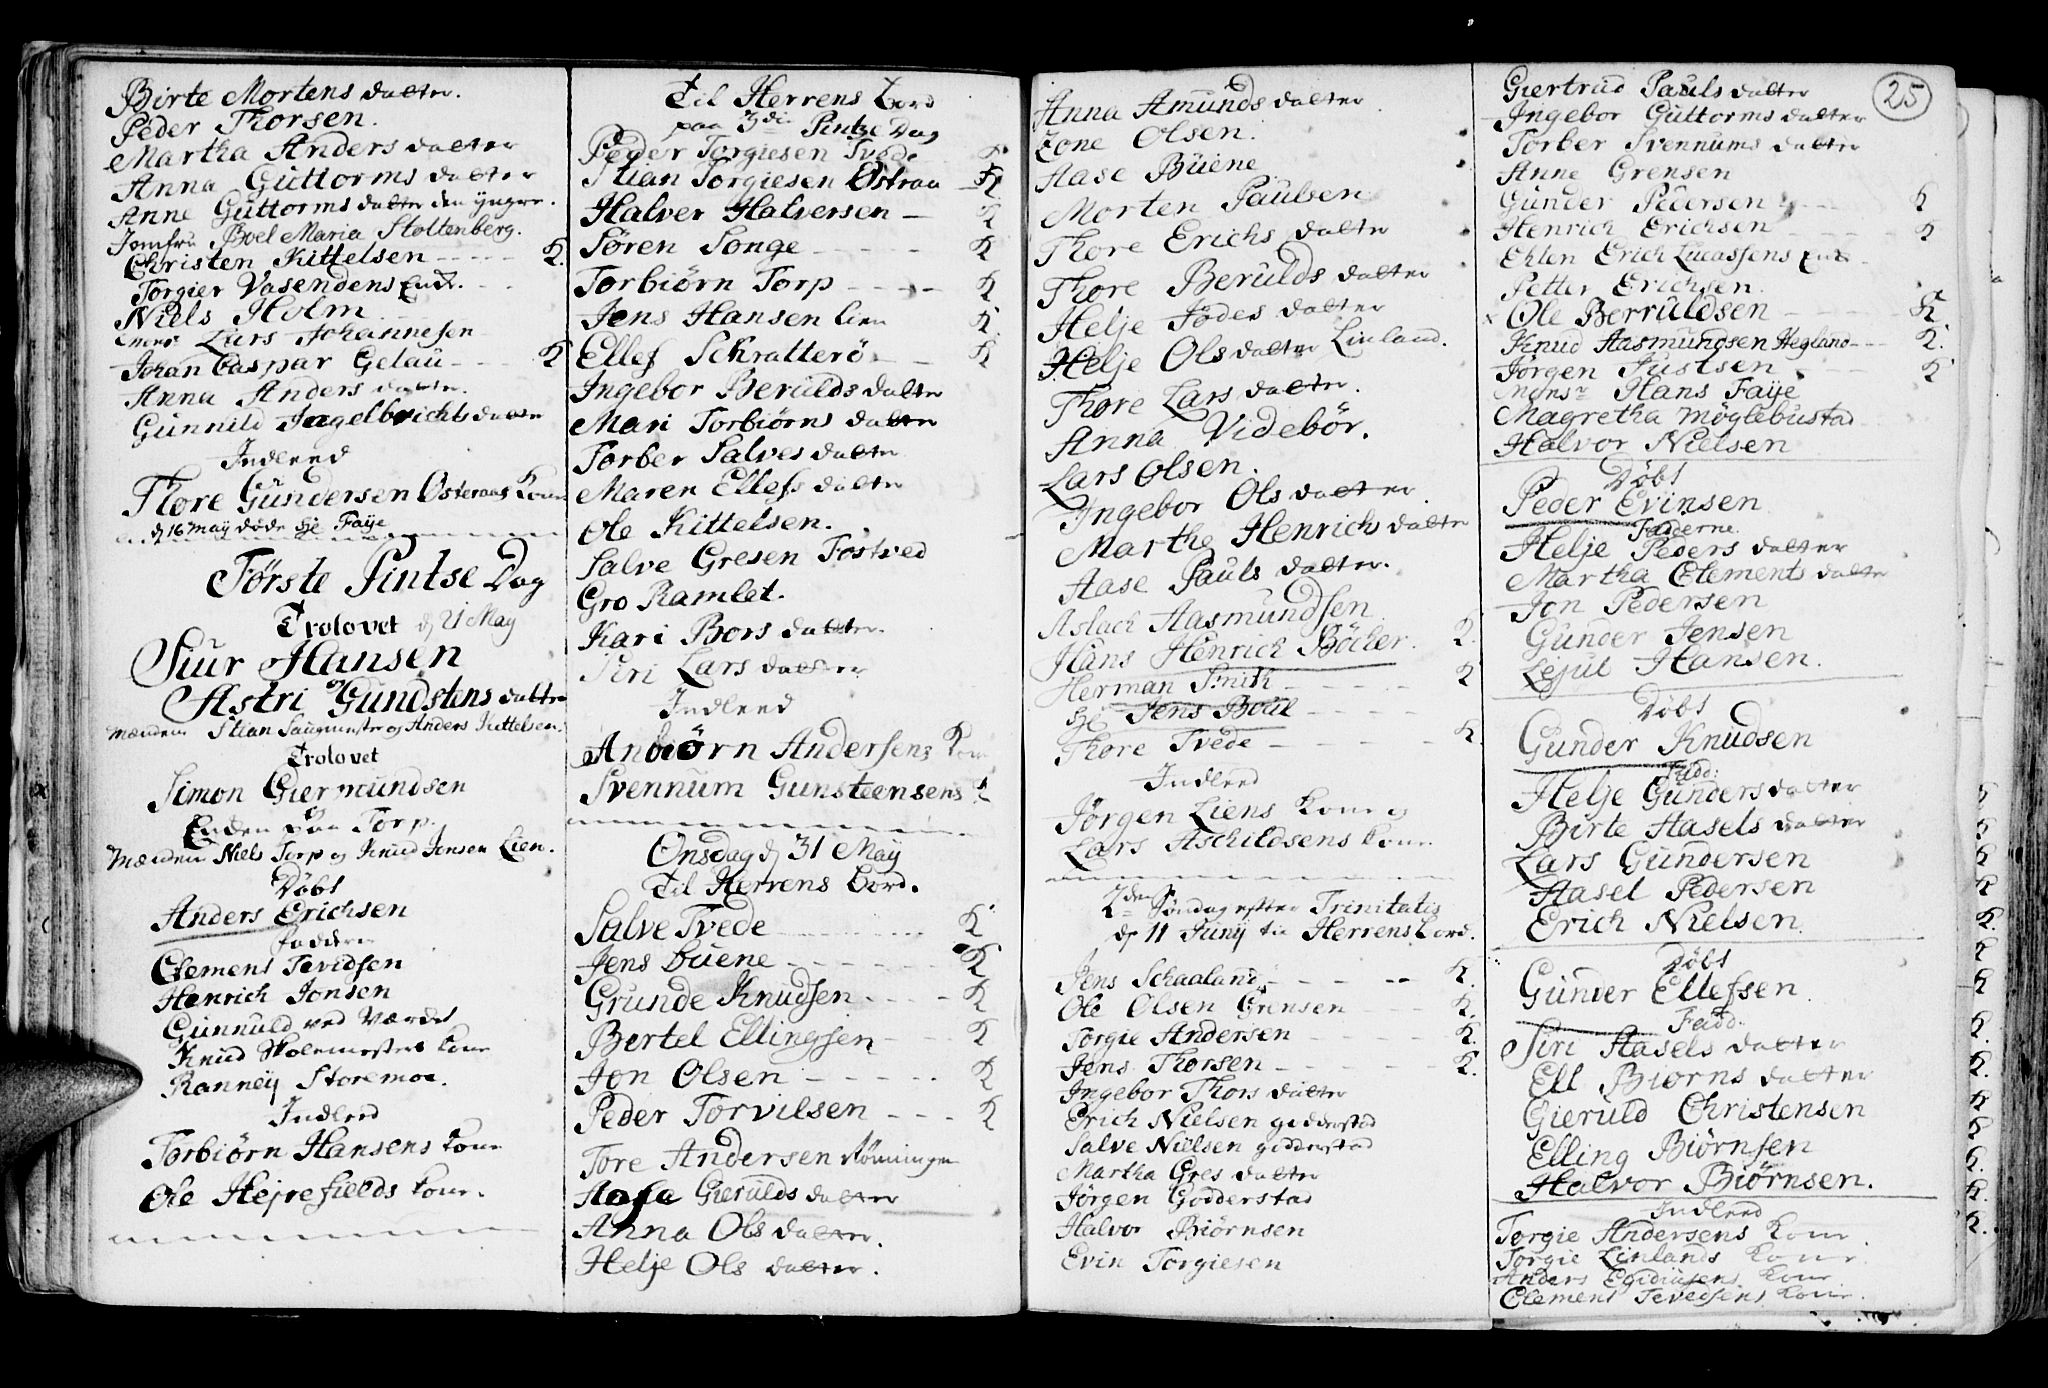 Birte Mortens datter.
Peder Thorsen.
Martha Anders datter
Anna Guttorms datter
Anne Guttorms datter den yngre.
Jomfru Boel Maria Stoltenberg.
Christen Kittelsen - - - - - K.
Torgier Vasendens Enke. - -
Niels Holm
Lars Johannesen
Johan Caspar Gelau - - - K
Anna Anders datter.
Gunnild Ingelbrichts datter
Indleed
Thore Gundersen Osteraas Kone
d 16 May døde Hr Faÿe
Første Pintse Dag
Trolovet d 21 May
Siur Hansen
og
Astri Gundstens datter
Mændene Stian Saugmester og Anders Kittelsen.
Trolovet
Simon Giermundsen
Enken paa Torp.
Mændene Niels Torp og Knud Jensen Lien.
Døbt
Anders Erichsen
Faddere
Clemens Tevidsen
Henrich Jonsen
Gunnuld ved Værdet
Knud Skolemesters Kone
Ranneÿ Storemoe.
Indleed
Torbiørn Hansens Kone
Ole Hejrefields Kone.
Til Herrens bord
paa 3die Pintze Dag
Peder Torgiesen Tvede K
Stian Torgiesen Østraa - K
Halver Halversen - K
Søren Songe - - - - K
Torbiørn Torp - - - - K
Jens Hansen Lien K.
Ellef Schratterø - - K
Ingebor Berulds datter
Mari Torbiørns datter
Torber Salves datter
Maren Ellefs datter
Ole Kittelsen.
Salve Gresen Fostved
Gro Ramlet.
Kari Bors datter.
Siri Lars datter
Indleed
Anbiørn Andersens Kone
Svennum Gunsteensens K
Onsdag d 31 May
Til Herrens bord.
Salve Tvede - - - - K
Jens Buene - - - - K
Grunde Knudsen - - - - K
Bertel Ellingsen - - - - K
Jon Olsen - - - - - K
Peder Torvilsen - - - K
Tore Andersen Rønningen
Aase Gierulds datter
Anna Ols datter.
Helje Ols datter.
Anna Amunds datter
Zone Olsen.
Aase Buene
Morten Paulsen
Thore Erichs datter
Thore Berulds datter
Helje Jødes datter
Helje Ols datter Linland.
Thore Lars datter.
Anna Videbör.
Lars Olsen.
Ingebor Ols datter.
Marthe Henrichs datter
Aase Pauls datter.
Aslach Aasmundsen
Hans Henrich Böcher. K.
Herman Smith - - - - K
Hr Jens Boül - - - -
Thore Tvede - - - - - K.
Indleed
Jørgen Liens Kone og
Lars Aschildsens Kone
2den Søndag efter Trinitatis
d 11 Junij til Herrens bord.
Jens Schaaland - - - - - K.
Ole Olsen Grensen - - - K.
Torgie Andersen - - - - - K.
Jens Thorsen - - - - - - K.
Ingebor Thors datter
Erich Nielsen gidderstad
Salve Nielsen gidderstad
Martha Gres datter
Jørgen Godderstad
Halvor Biørnsen
Evin Torgiesen
25
Giertrud Pauls datter
Ingebor Guttorms datter
Torber Svennums datter
Anne Grensen
Gunder Pedersen - - - K
Henrich Erichsen - - - - K
Erich Lucassens Enke -
Petter Erichsen.
x Ole Berruldsen - - - - - K
Knud Aasmundsen Hegland - - - K.
Jørgen Justsen - - - - K
Monsr Hans Faÿe
Magretha Möglebustad
Halvor Nielsen
Døbt
Peder Evinsen
Fadderne
Helje Peders datter
Martha Clements datter
Jon Pedersen
Gunder Jensen
Lejul Hansen.
Døbt
Gunder Knudsen
Fadd:
Helje Gunders datter
Birte Aasels datter
Lars Gundersen
Aasel Pedersen
Erich Nielsen.
Døbt
Gunder Ellefsen
Fadd.
Siri Aasels datter
Ell Biørns datter
Gieruld Christensen
Elling Biørnsen
Halvor Biørnsen.
Indleed
Torgie Andersens Kone.
Torgie Linlands Kone
Anders Egidiusens Kone
Clemens Tevedsens Kone.